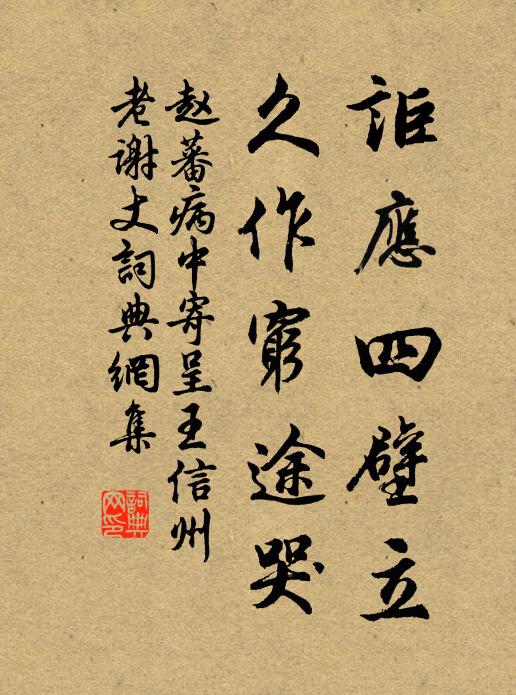 詎應四壁立
久作窮途哭
赵蕃病中寄呈王信州
老谢丈詞典網集
詞典
网印